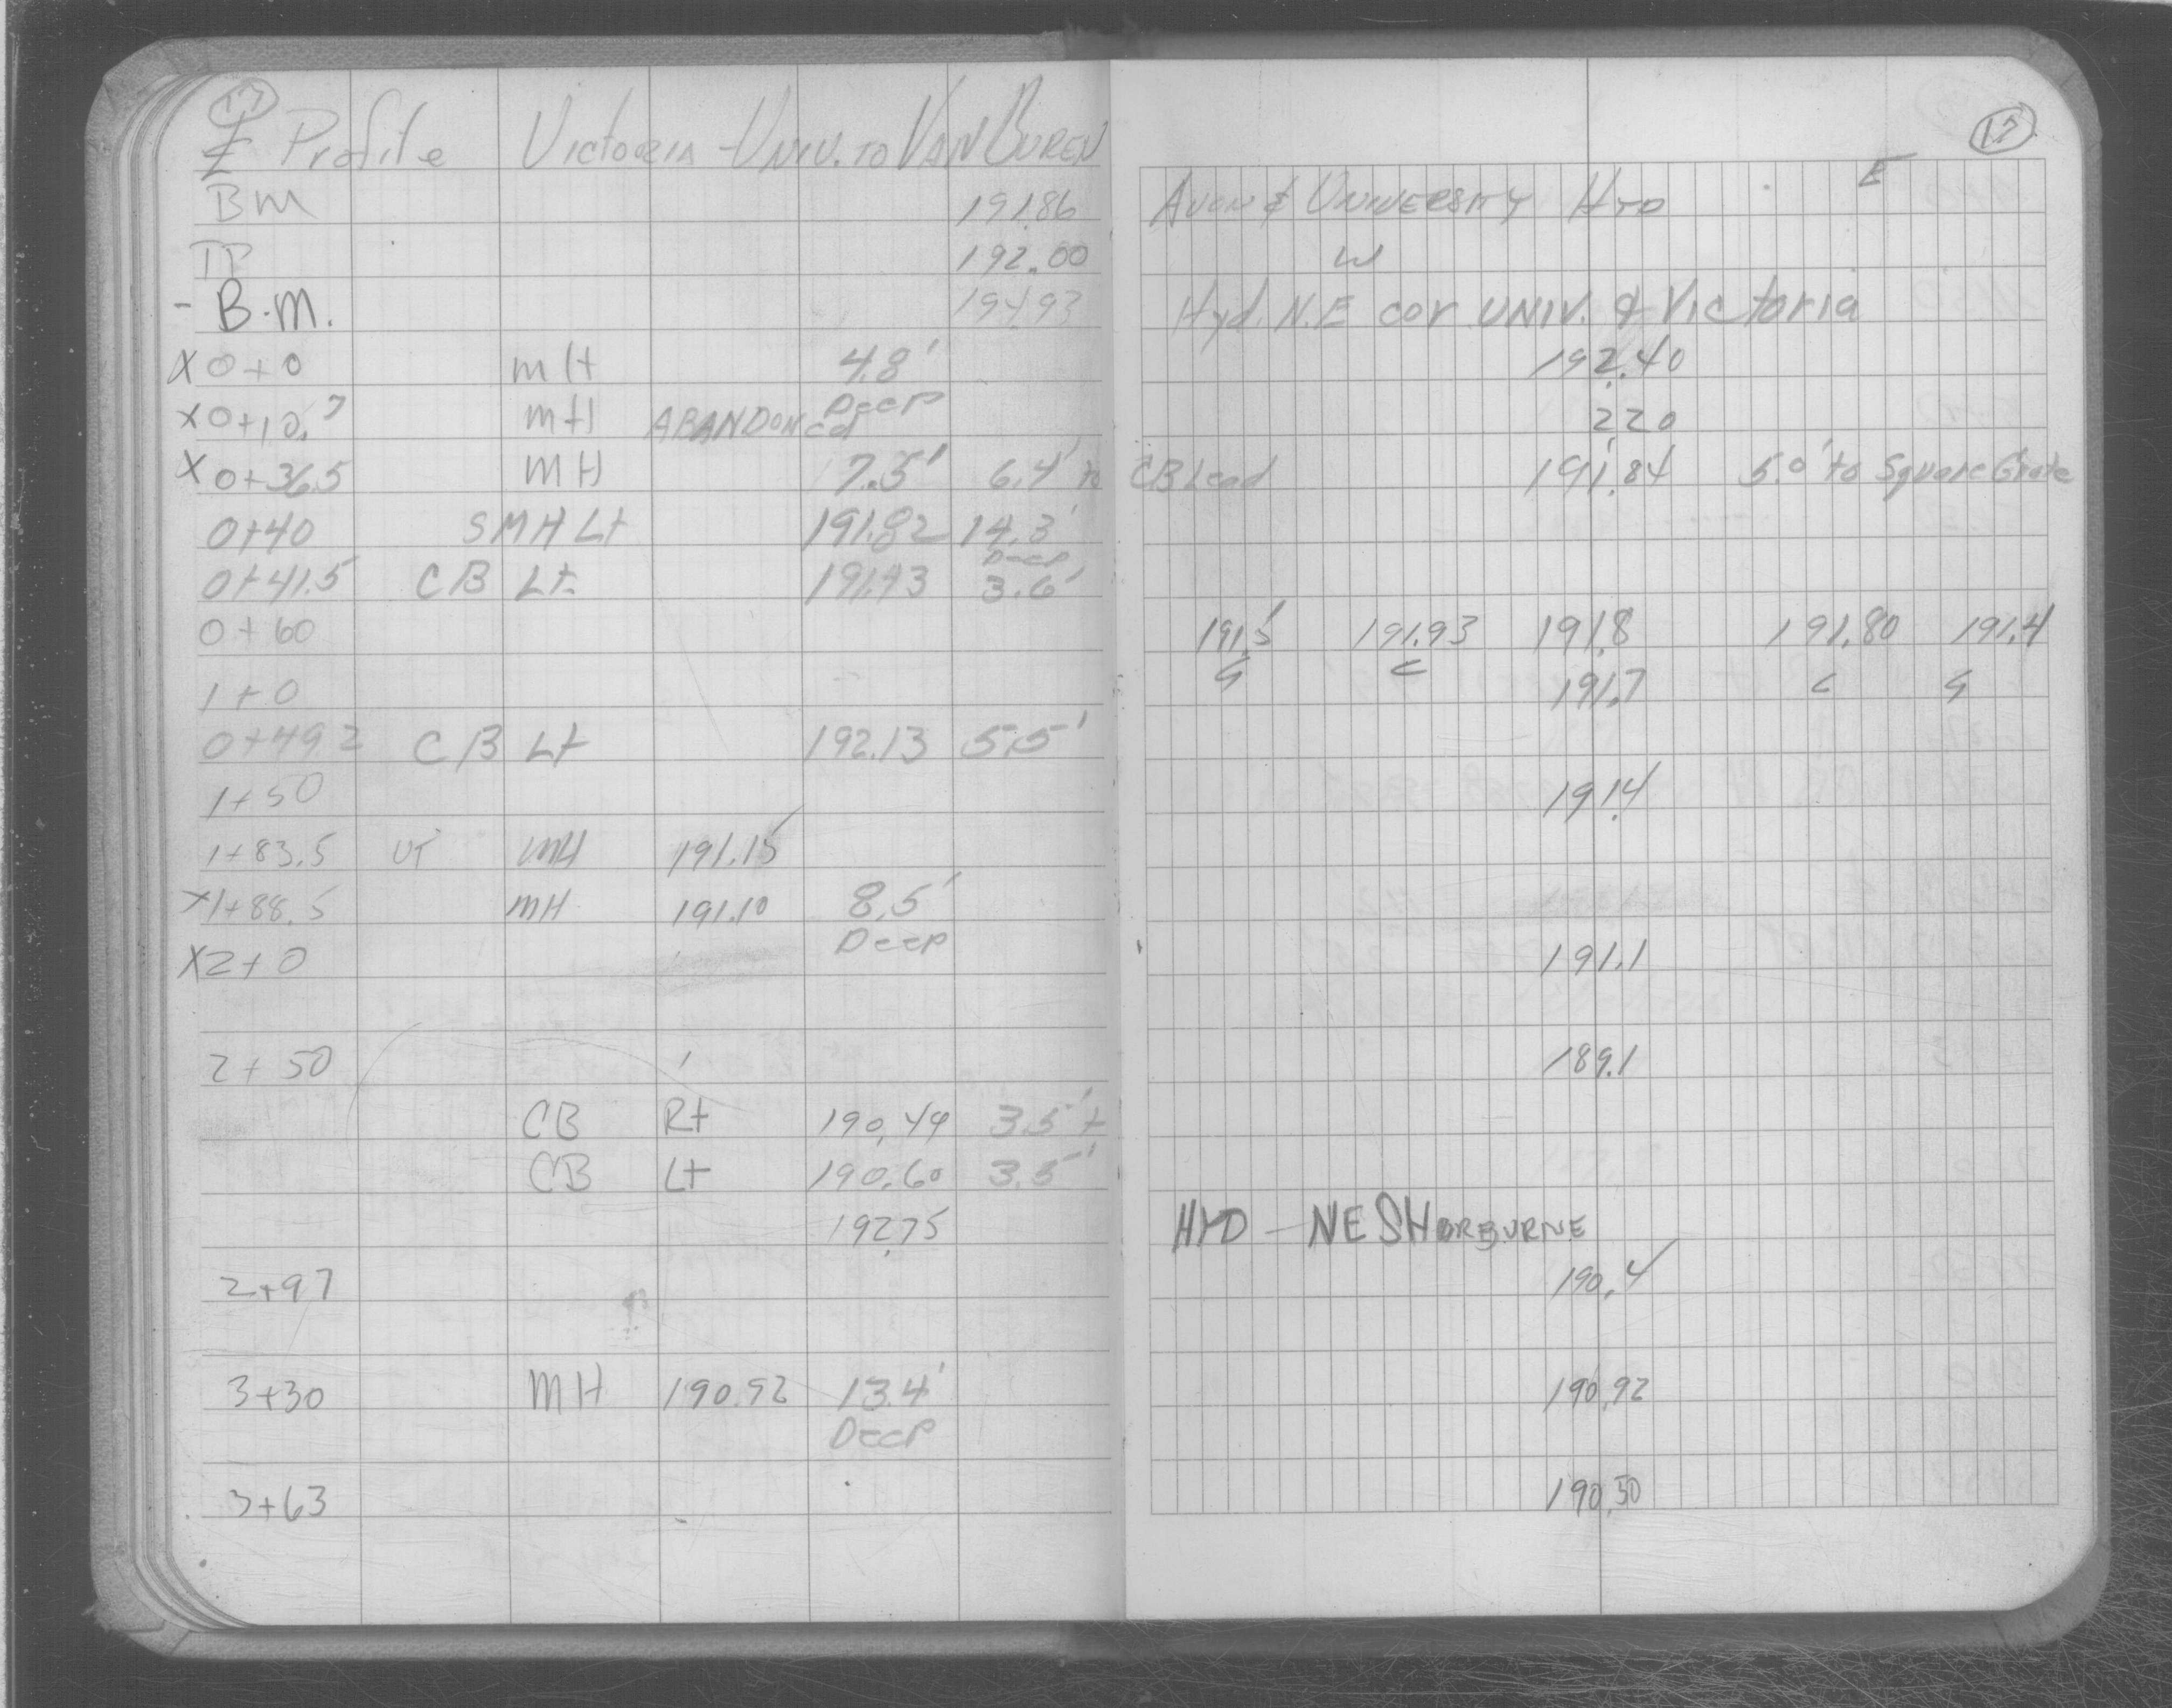 17
℄ Profile Victoria - Univ. to Van Buren
17
E
BM 191.86 Avon & University Hyd
TP 192.00 W
- B.M. 194.93 Hyd. N.E cor UNIV. & Victoria
X 0+0 MH 4.8' Deep 192.40
X 0+10.7 MH ABANDONed 220
X 0+36.5 MH 7.5' 6.4' to CB Lead 191.84 5.0' to Square Grate
0+40 SMH Lt 191.82 14.3' Deep
0+41.5 CB Lt. 191.43 3.6'
0+60 191.5 G 191.93 C 191.8 191.80 C 191.4 G
1+0 191.7
0+49.2 CB Lt 192.13 5.5'
1+50 191.4
1+83.5 UT MH 191.15
X 1+88.5 MH 191.10 8.5' Deep
X 2+0 191.1
2+50 189.1
CB Rt 190.49 3.5'±
CB Lt 190.60 3.5'
192.75 HYD - NE SHERBURNE
2+97 190.4
3+30 MH 190.92 13.4' Deep 190.92
3+63 190.50